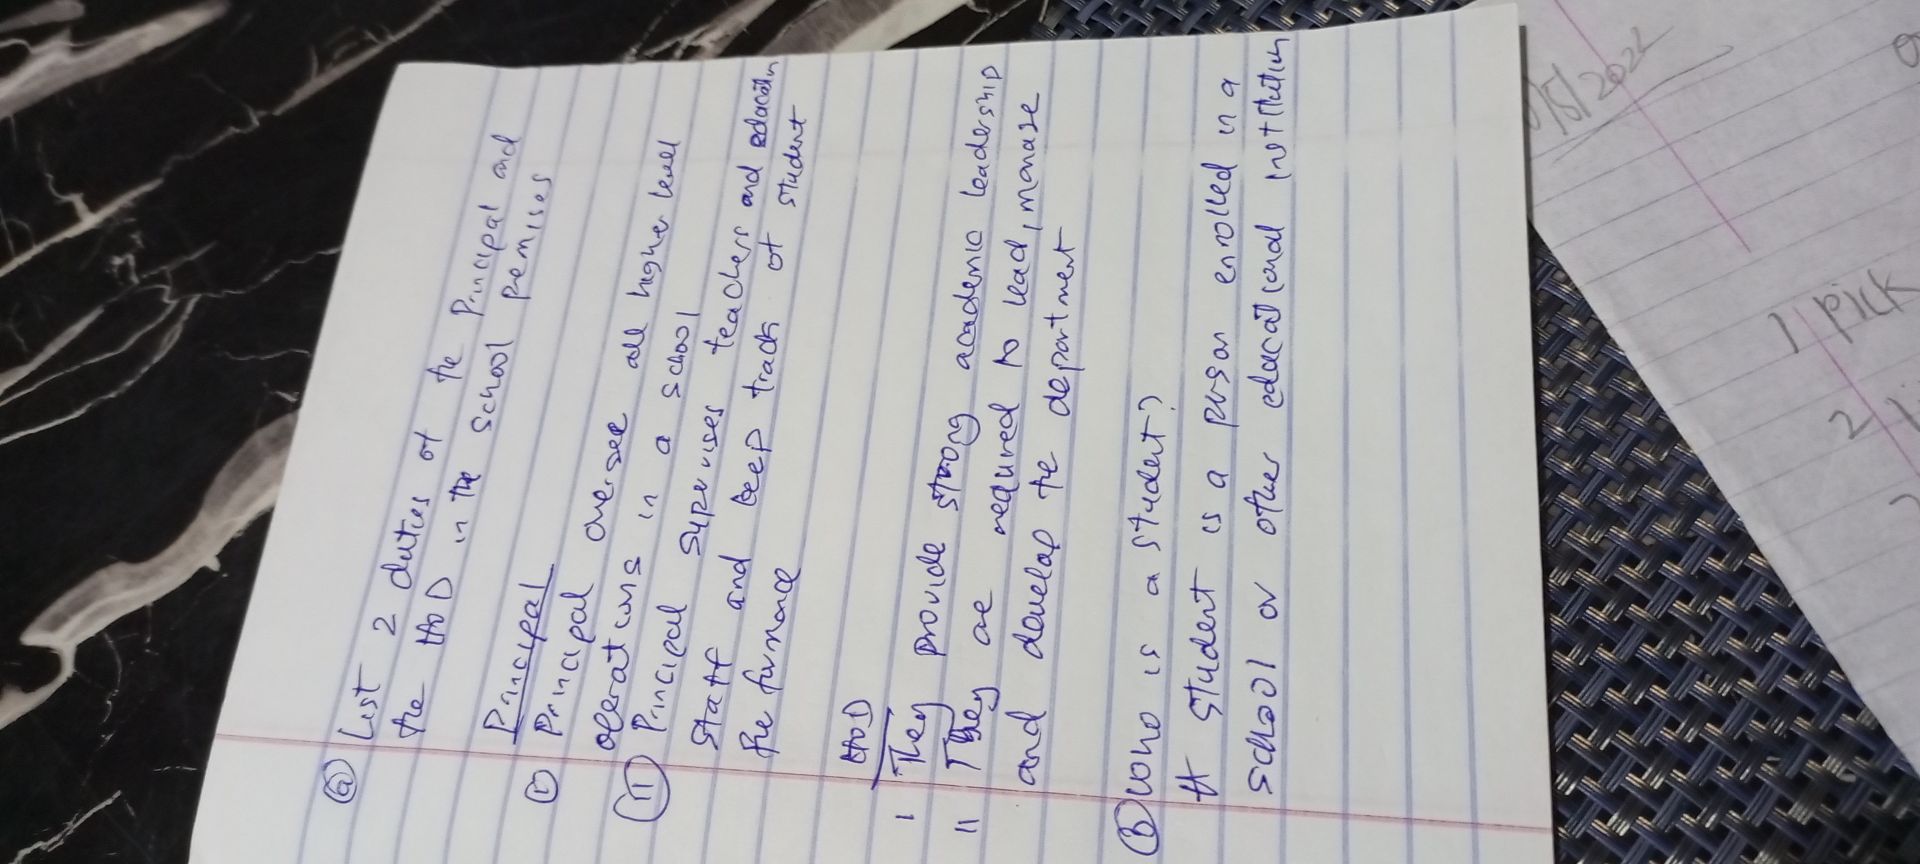 (a) List 2 duties of the Principal and
the HOD in the school premises
Principal
(i) Principal oversee all higher level
operations in a school
(ii) Principal supervises teachers and education
staff and keep track of student
performance
HOD
i They provide strong academic leadership
ii They are required to lead, manage
and develop the department
(B) who is a student?
A student is a person enrolled in a
school or other educational institution
/5/2022
1 pick
2